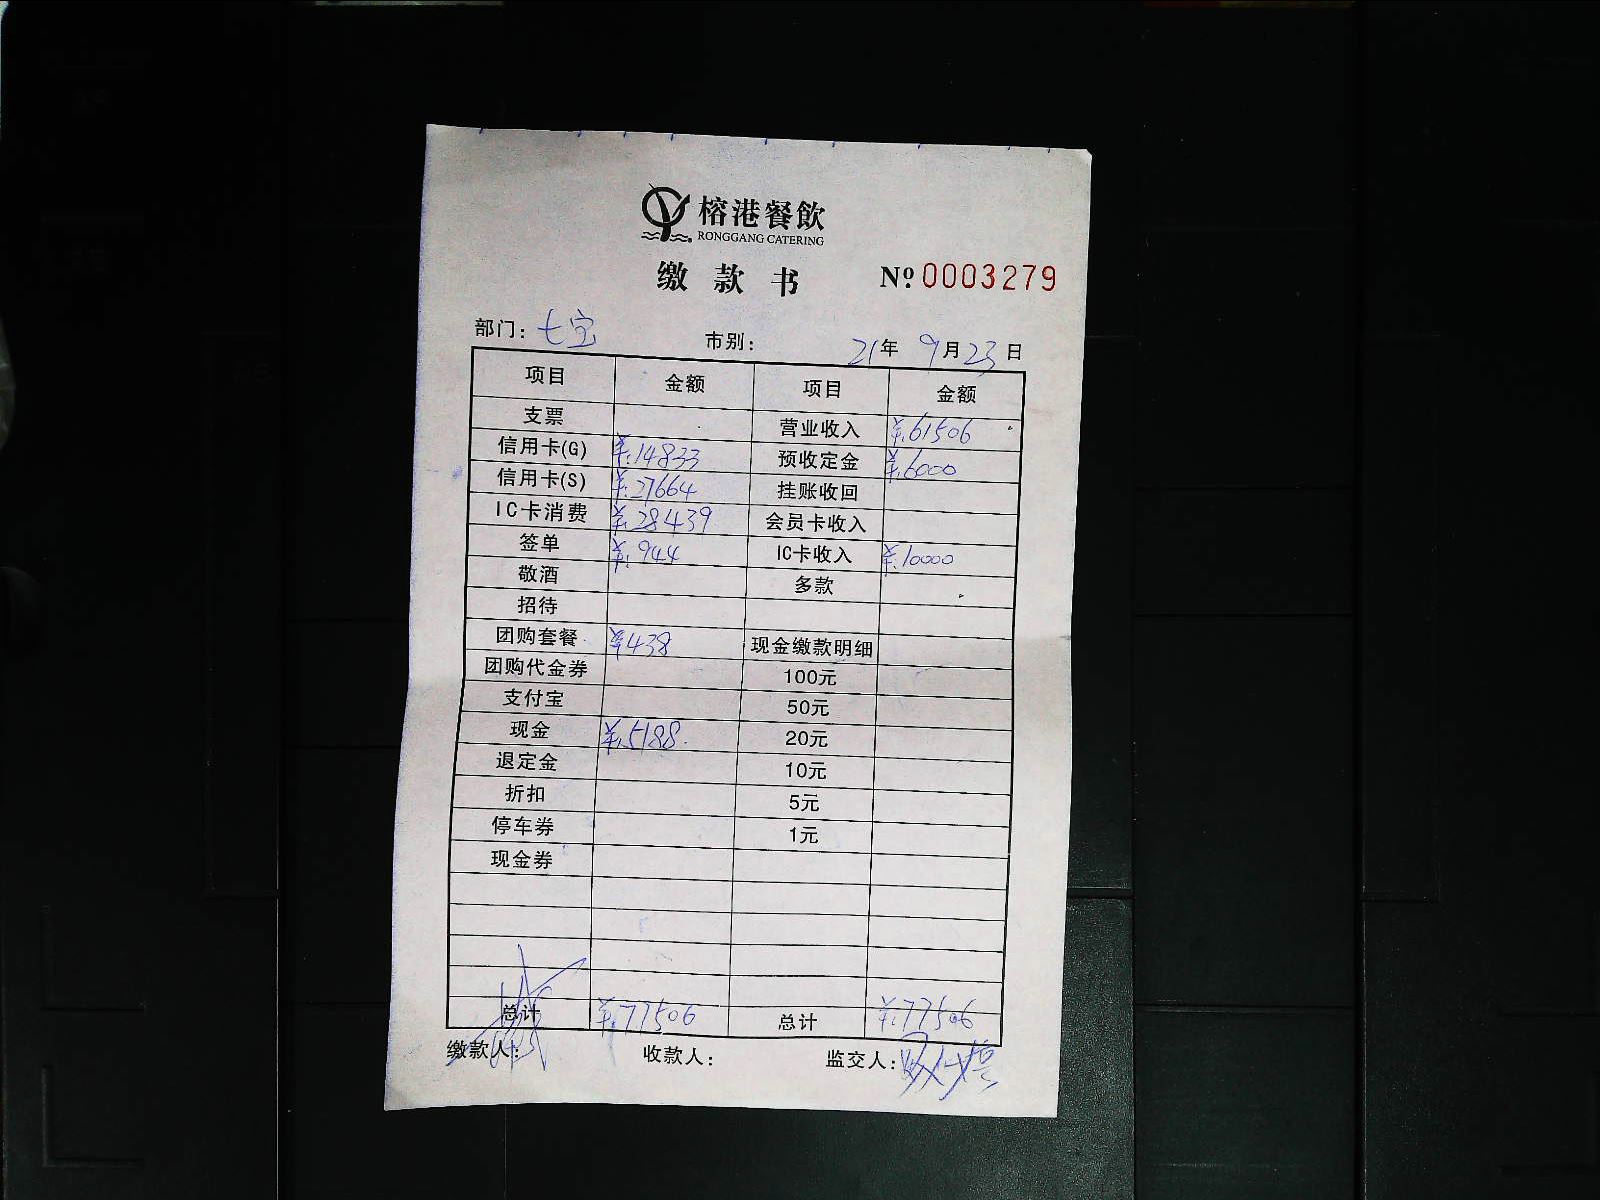 榕港餐飲
RONGGANG CATERING
缴款书 Nº 0003279
部门: 七宝 市别: 21年 9月23日
项目 金额 项目 金额
支票 营业收入 ¥:61506
信用卡(G) ¥:14833 预收定金 ¥:6000
信用卡(S) ¥:27664 挂账收回
IC卡消费 ¥:28439 会员卡收入
签单 ¥:944 IC卡收入 ¥:10000
敬酒 多款
招待
团购套餐 ¥438 现金缴款明细
团购代金券 100元
支付宝 50元
现金 ¥:5188. 20元
退定金 10元
折扣 5元
停车券 1元
现金券
总计 ¥:77506 总计 ¥:77506
缴款人: 收款人: 监交人: